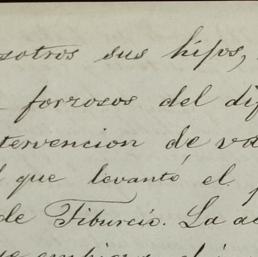 sotros sus hijos,
forzosos del dif
tervencion de va
que levantó el p
de Tiburcio. La a